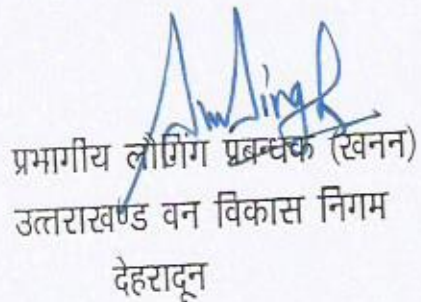 प्रभागीय लौगिंग प्रबन्धक (खनन)
उत्तराखण्ड वन विकास निगम
देहरादून